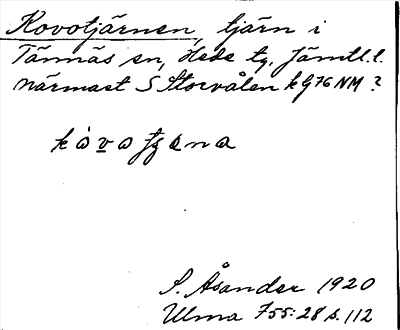 Kovotjärnen, tjärn i
Tännäs sn, Hede tg, Jämtl. l.
närmast S Storvålen k G76 NM ?
S. Åsander 1920
Ulma 755:28 s. 112